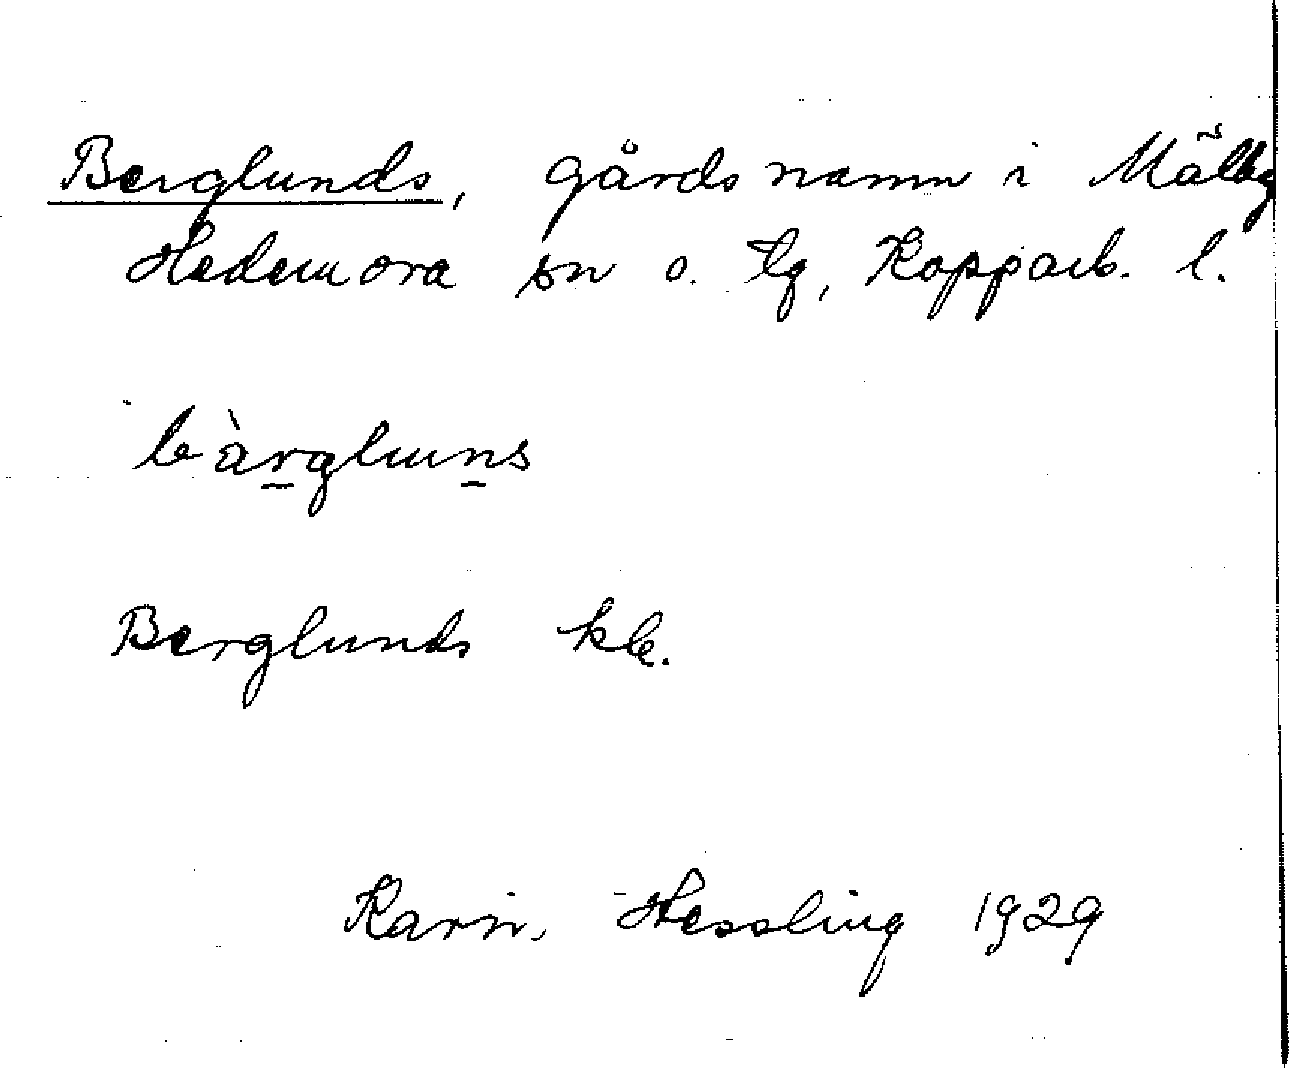 Berglunds, gårdsnamn i Mälby
Hedemora sn o. tg, Kopparb. l.
bàrgluns
Berglunds kb.
Karin Hessling 1929